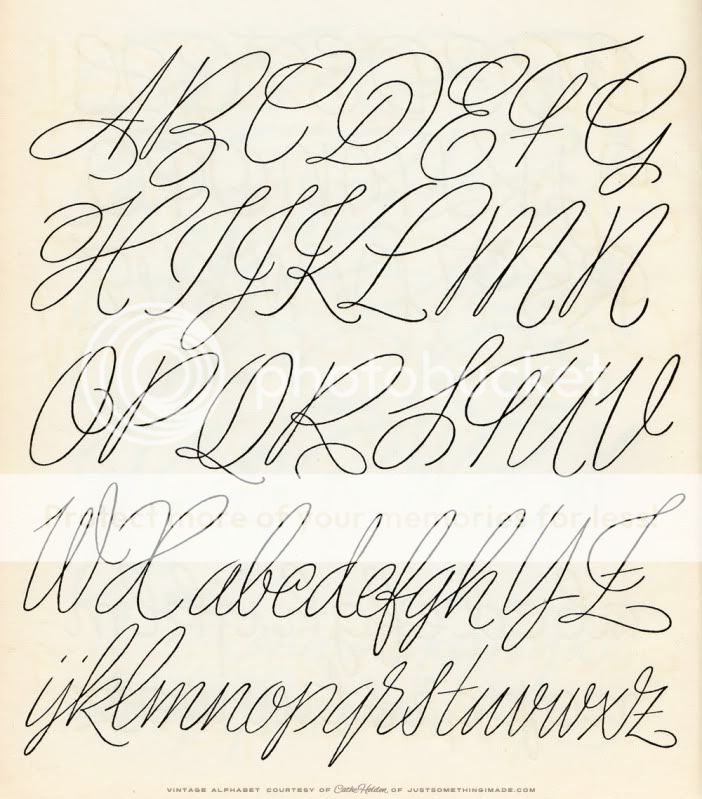 ABCDEFG
HIJKLMN
photobucket
OPQRSTUV
Protect more of your memories for less!
WXabcdefghYZ
ijklmnopqrstuvwxz
VINTAGE ALPHABET COURTESY OF Cathe Holden OF JUSTSOMETHINGIMADE.COM